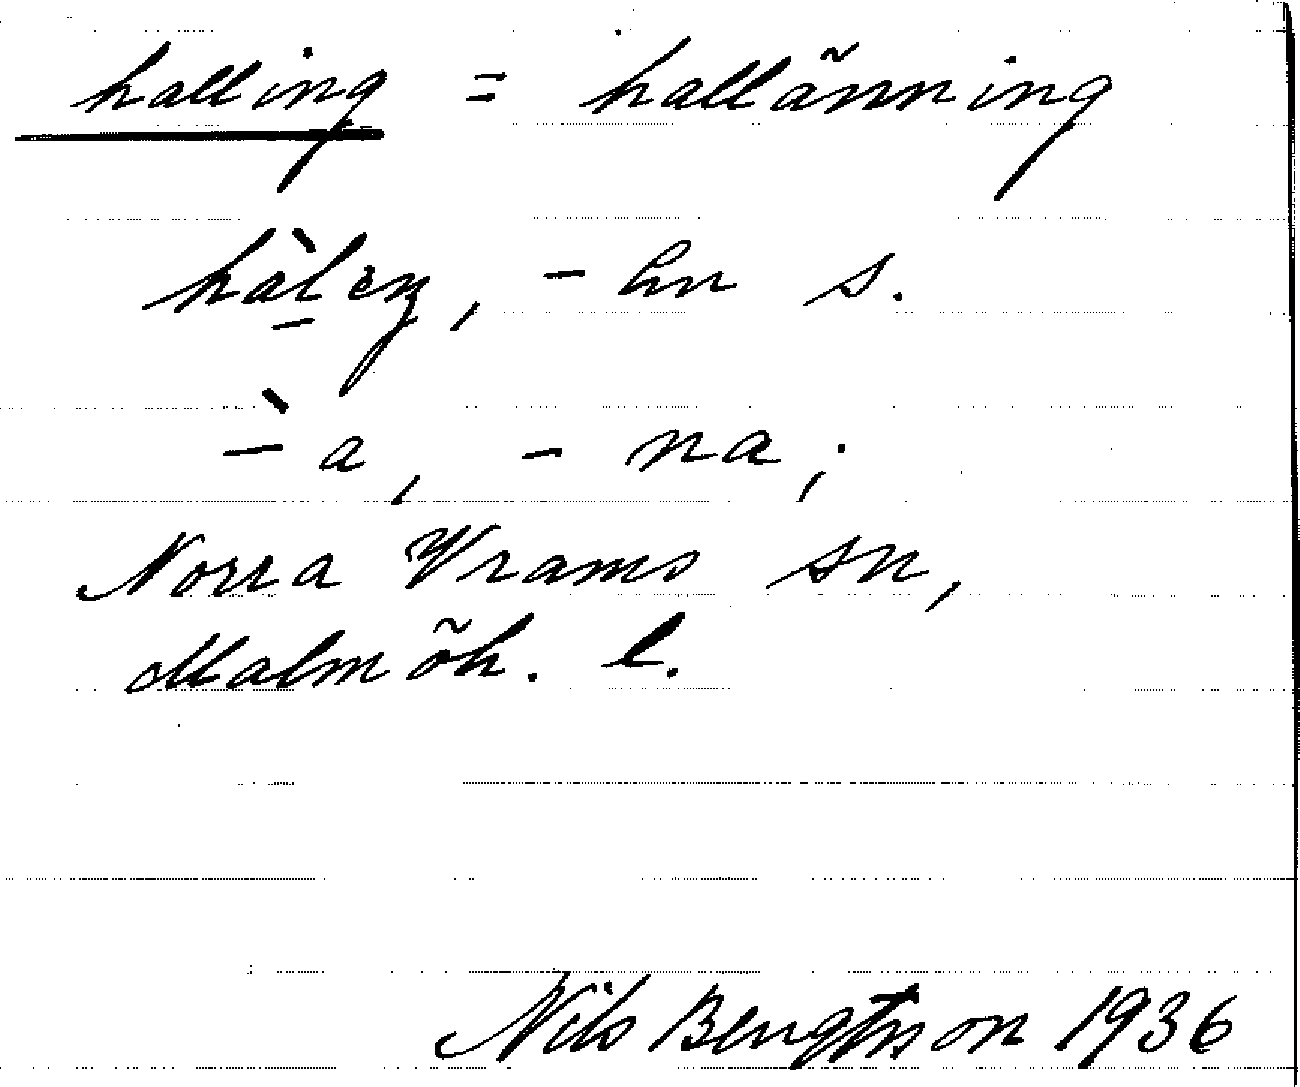 halling = hallänning
hàl̠eŋ, - en s.
-̀ a, - na;
Norra Vrams sn,
Malmöh. l.
Nils Bengtsson 1936